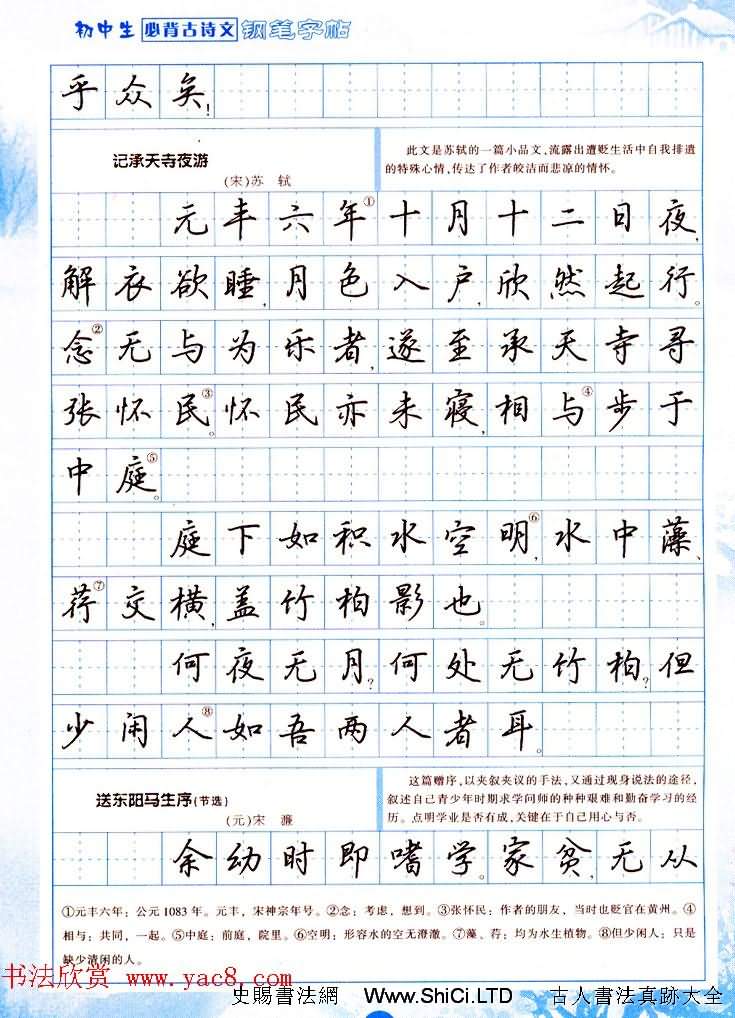 初中生 必背古诗文 钢笔字帖
乎众矣！
记承天寺夜游
（宋）苏 轼
此文是苏轼的一篇小品文，流露出遭贬生活中自我排遣
的特殊心情，传达了作者皎洁而悲凉的情怀。
元丰六年①十月十二日夜，
解衣欲睡，月色入户，欣然起行。
念②无与为乐者，遂至承天寺寻
张怀民③。怀民亦未寝，相与④步于
中庭⑤。
庭下如积水空明⑥，水中藻、
荇⑦交横，盖竹柏影也。
何夜无月？何处无竹柏？但
少闲人⑧如吾两人者耳。
送东阳马生序（节选）
（元）宋 濂
这篇赠序，以夹叙夹议的手法，又通过现身说法的途径，
叙述自己青少年时期求学问师的种种艰难和勤奋学习的经
历。点明学业是否有成，关键在于自己用心与否。
余幼时即嗜学。家贫，无从
①元丰六年：公元1083年。元丰，宋神宗年号。②念：考虑，想到。③张怀民：作者的朋友，当时也贬官在黄州。④
相与：共同，一起。⑤中庭：前庭，院里。⑥空明：形容水的空无澄澈。⑦藻、荇：均为水生植物。⑧但少闲人：只是
缺少清闲的人。
书法欣赏 www.yac8.com
史賜書法網 Www.ShiCi.LTD 古人書法真跡大全